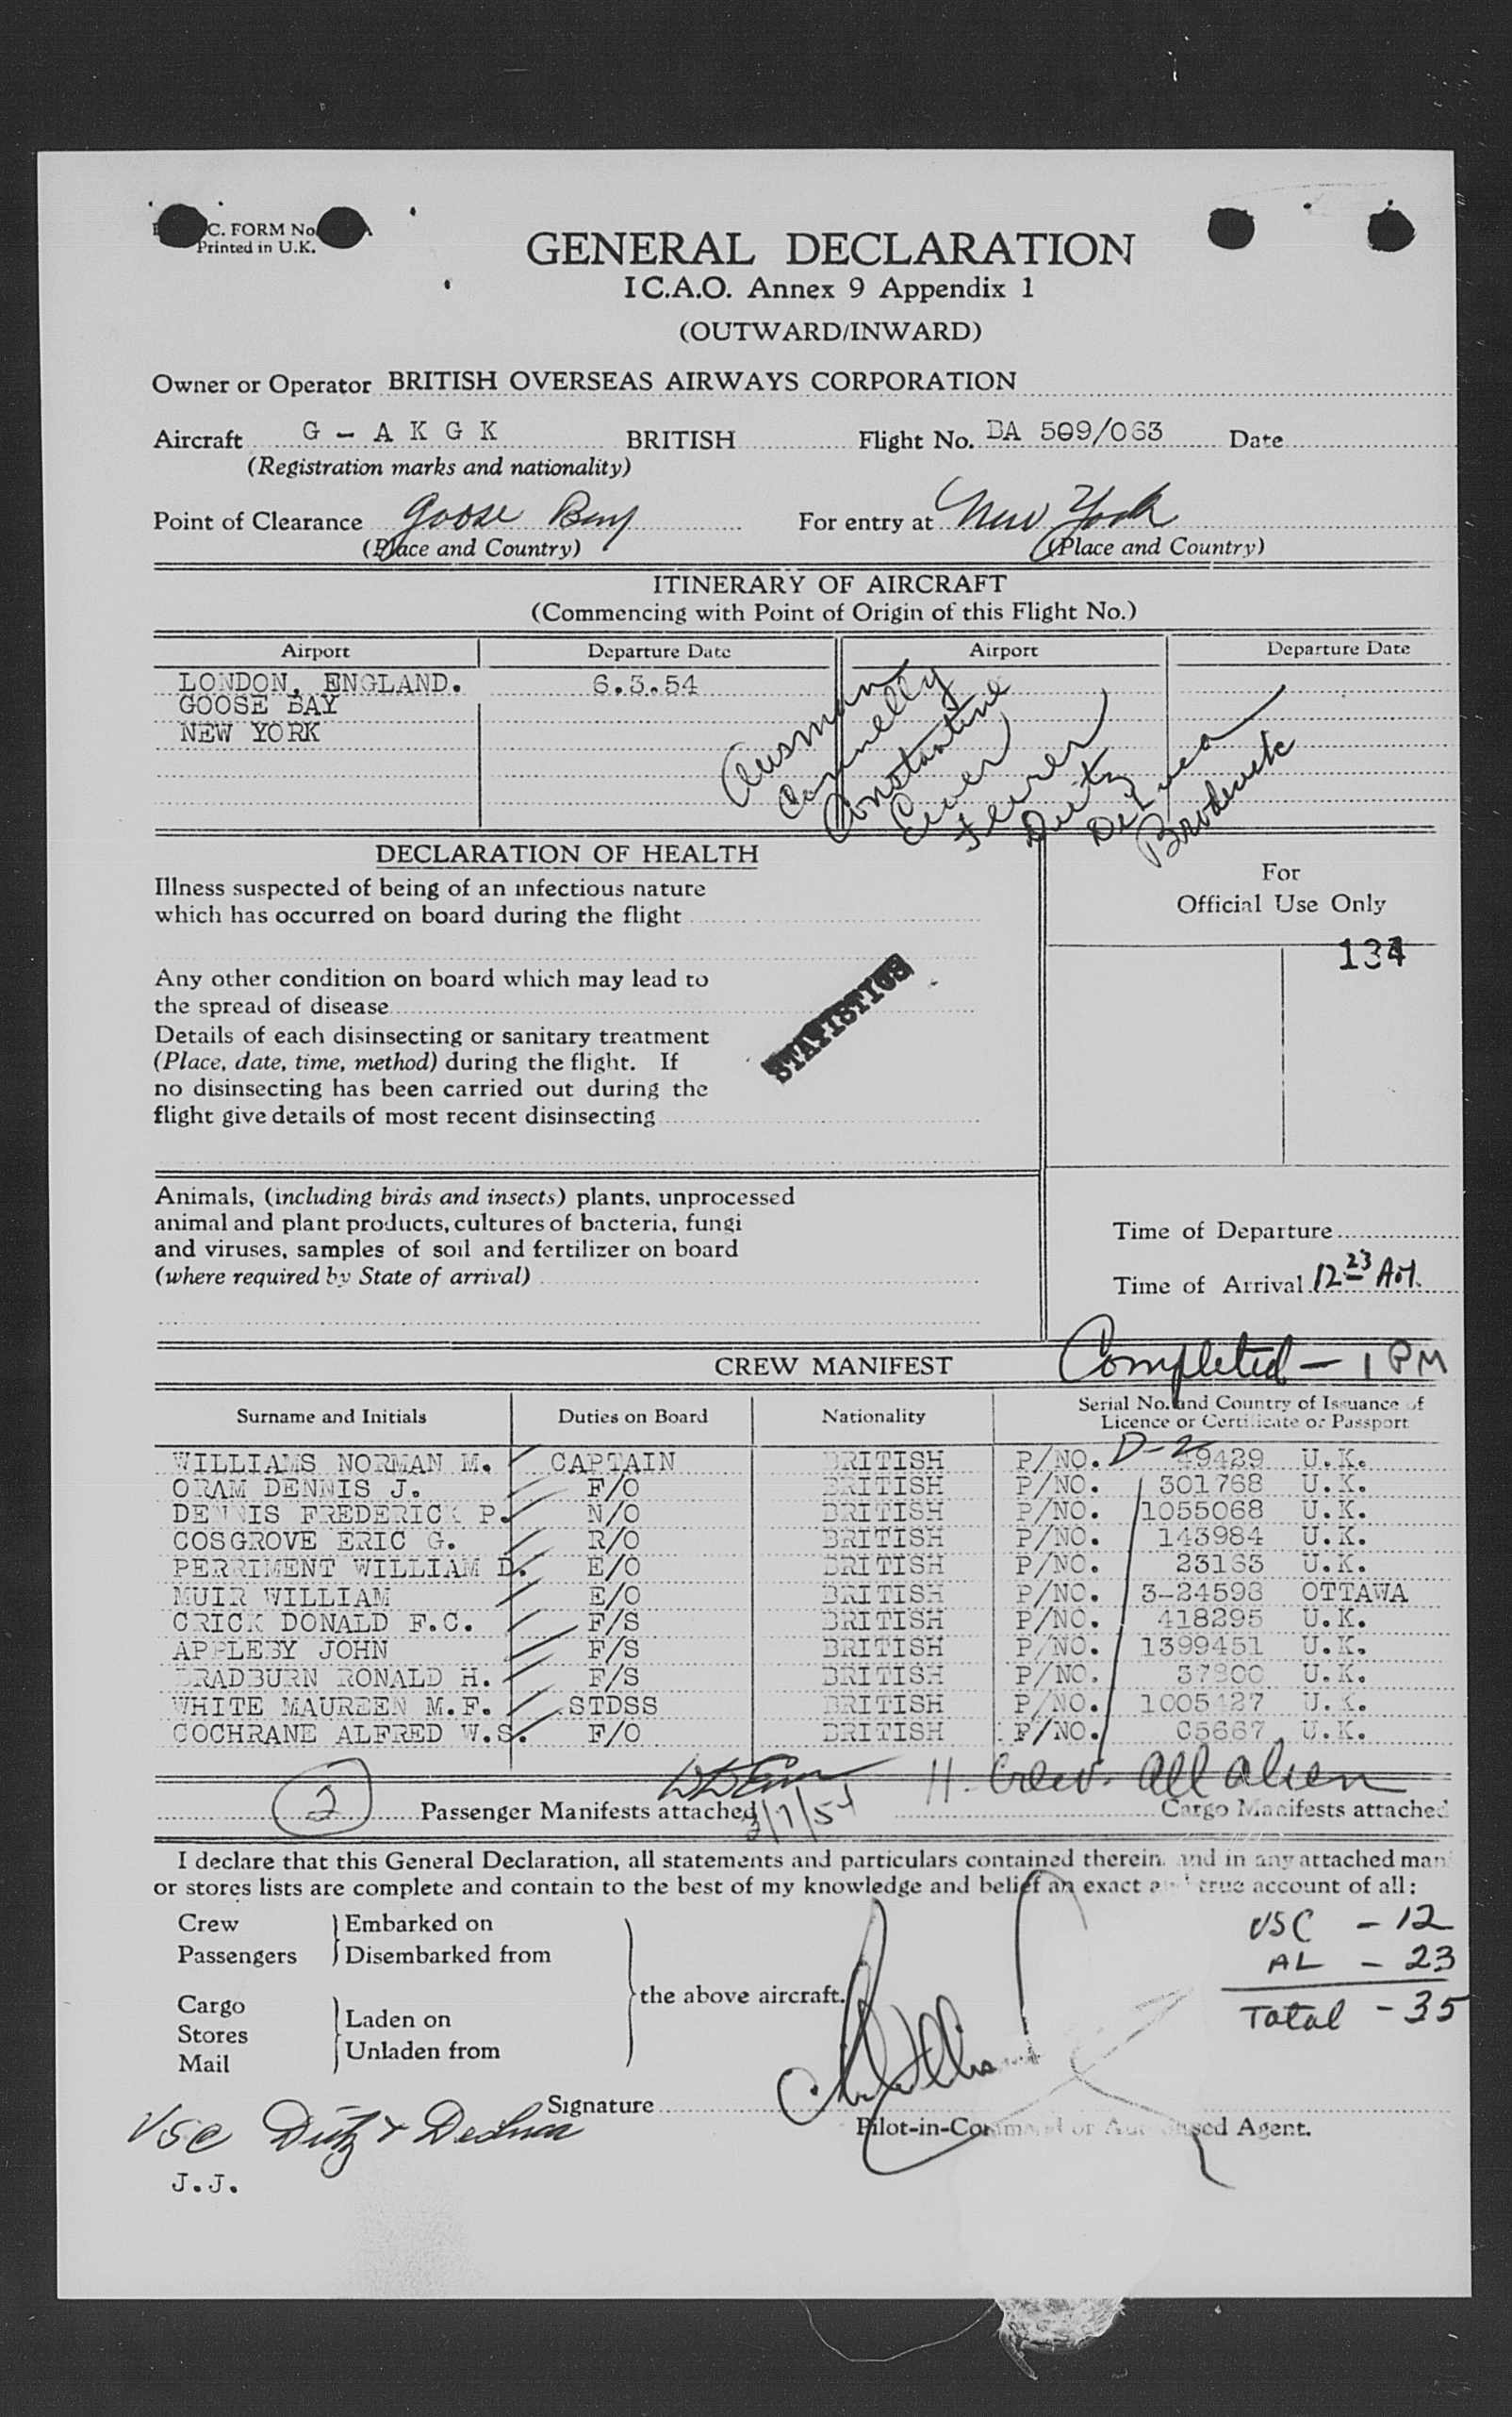 C. FORM No
Printed in U.K.
GENERAL DECLARATION
I C.A.O. Annex 9 Appendix 1
(OUTWARD/INWARD)
Owner or Operator BRITISH OVERSEAS AIRWAYS CORPORATION
Aircraft G - A K G K BRITISH Flight No. BA 509/063 Date
(Registration marks and nationality)
Point of Clearance Goose Bay For entry at New York
(Place and Country) (Place and Country)
ITINERARY OF AIRCRAFT
(Commencing with Point of Origin of this Flight No.)
Airport Departure Date Airport Departure Date
LONDON, ENGLAND. 6.3.54
GOOSE BAY
NEW YORK
Ausman
Connelly
Constantine
Feurer
Dietz
DeLuca
Broderick
DECLARATION OF HEALTH
Illness suspected of being of an infectious nature
which has occurred on board during the flight
For
Official Use Only
134
Any other condition on board which may lead to
the spread of disease
STATISTICS
Details of each disinsecting or sanitary treatment
(Place, date, time, method) during the flight. If
no disinsecting has been carried out during the
flight give details of most recent disinsecting
Animals, (including birds and insects) plants, unprocessed
animal and plant products, cultures of bacteria, fungi
and viruses, samples of soil and fertilizer on board
(where required by State of arrival)
Time of Departure
Time of Arrival 12 23 AM.
CREW MANIFEST Completed - 1 PM
Surname and Initials Duties on Board Nationality Serial No. and Country of Issuance of
Licence or Certificate or Passport
WILLIAMS NORMAN M. CAPTAIN BRITISH P/NO. D-2 49429 U.K.
ORAM DENNIS J. F/O BRITISH P/NO. 301768 U.K.
DENNIS FREDERICK P. N/O BRITISH P/NO. 1055068 U.K.
COSGROVE ERIC G. R/O BRITISH P/NO. 143984 U.K.
PERRIMENT WILLIAM D. E/O BRITISH P/NO. 23163 U.K.
MUIR WILLIAM E/O BRITISH P/NO. 3-24593 OTTAWA
CRICK DONALD F.C. F/S BRITISH P/NO. 418295 U.K.
APPLEBY JOHN F/S BRITISH P/NO. 1399451 U.K.
BRADBURN RONALD H. F/S BRITISH P/NO. 37800 U.K.
WHITE MAUREEN M.F. STDSS BRITISH P/NO. 1005427 U.K.
COCHRANE ALFRED W.S. F/O BRITISH P/NO. C5667 U.K.
11. Crew. All alien
2 Passenger Manifests attached Cargo Manifests attached
3/7/54
I declare that this General Declaration, all statements and particulars contained therein, and in any attached man
or stores lists are complete and contain to the best of my knowledge and belief an exact and true account of all:
Crew Embarked on
Passengers Disembarked from
Cargo
Stores
Mail
Laden on
Unladen from
the above aircraft.
USC - 12
AL - 23
Total - 35
Signature
Pilot-in-Command or Authorised Agent.
USC Dietz + DeLuca
J.J.